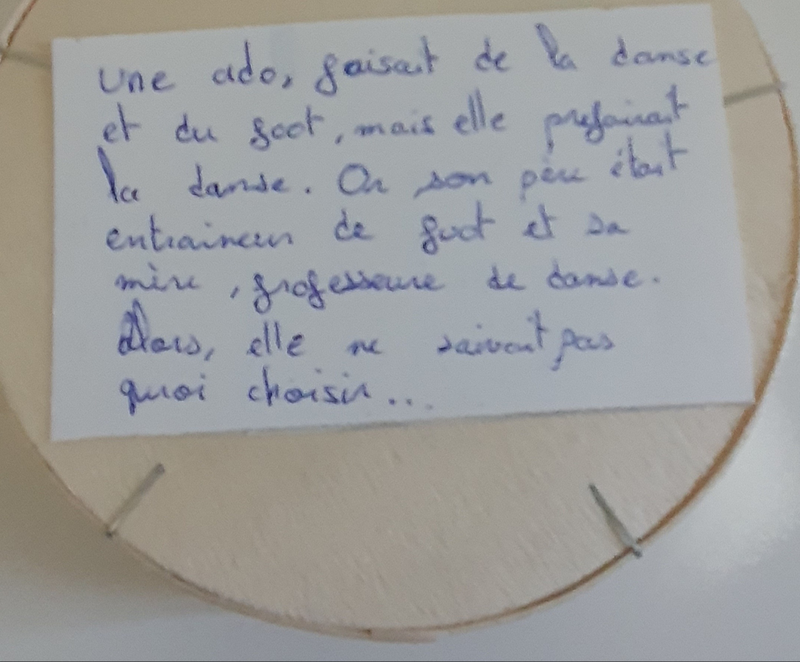 une ado, faisait de la danse
et du foot, mais elle prefairait
la danse. Or son père était
entraineur de foot et sa
mère, professeure de danse.
Alors, elle ne saivait pas
quoi choisir...